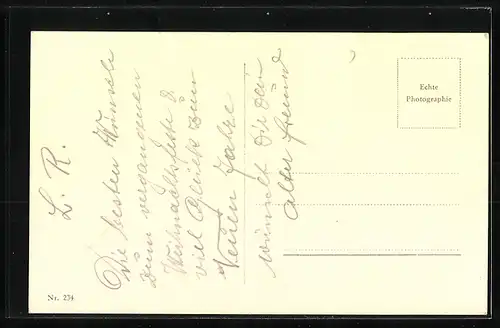 L. R.
Die besten Wünsche
zum vergangenen
Weihnachtsfeste &
viel Glück zum
Neuen Jahre
wünscht Dir dein
alter Freund
Echte
Photographie
Nr. 234